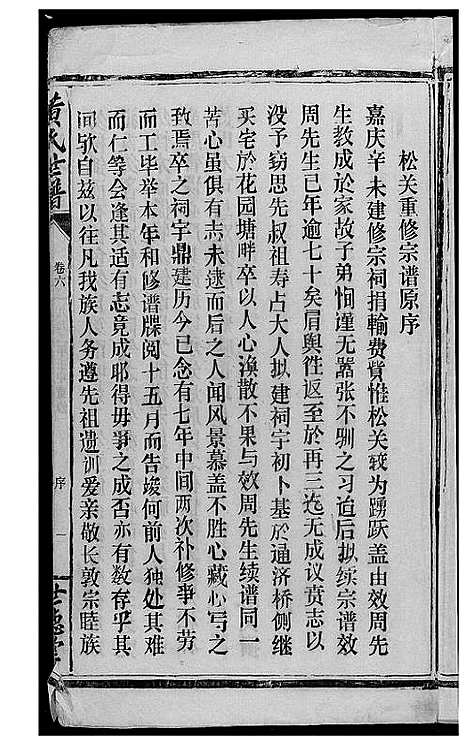 松关重修宗谱原序
嘉庆辛未建修宗祠捐输费赀惟松关较为踴跃盖由效周先
生教成於家故子弟恂谨无嚣张不驯之习迨后拟续宗谱效
周先生已年逾七十矣肩舆徃返至於再三迄无成议赍志以
没予窃思先叔祖寿占大人拟建祠宇初卜基於通济桥侧继
买宅於花园塘畔卒以人心涣散不果与效周先生续谱同一
苦心虽俱有志未逮而后之人闻风景慕盖不胜心藏心写之
致焉卒之祠宇鼎建历今已念有七年中间两次补修事不劳
而工毕举本年和修谱牒阅十五月而告竣何前人独处其难
而仁等会逢其适有志竟成耶得毋事之成否亦有数存乎其
间欤自兹以往凡我族人务遵先祖遗训爱亲敬长敦宗睦族
黄氏世谱
卷六
序
一
世德堂